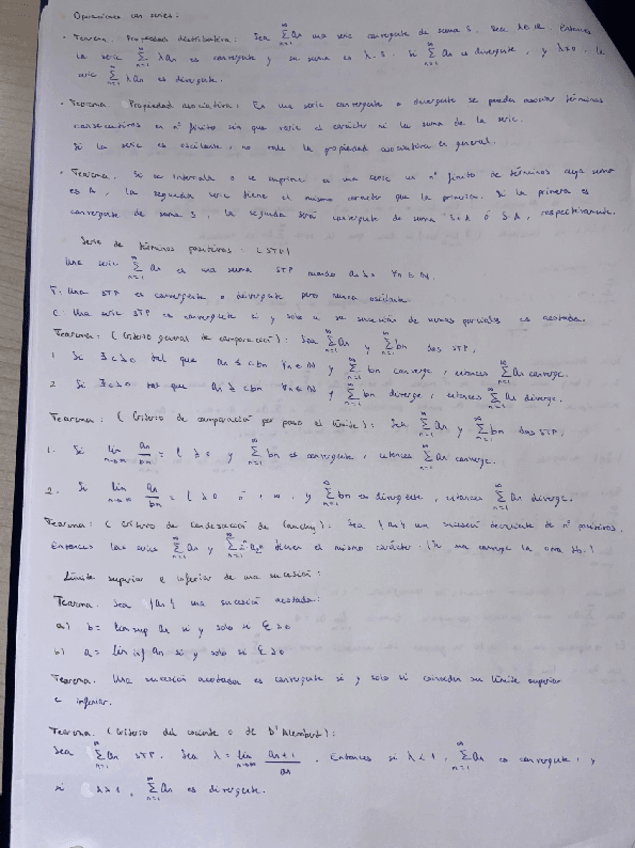 Operaciones con series:
· Teorema. Propiedad distributiva: Sea ∑_{n=1}^∞ an una serie convergente de suma S. Sea λ∈ℝ. Entonces
la serie ∑_{n=1}^∞ λan es convergente y su suma es λ·S. Si ∑_{n=1}^∞ an es divergente, y λ≠0, la
serie ∑_{n=1}^∞ λan es divergente.
· Teorema. Propiedad asociativa: En una serie convergente o divergente se pueden asociar términos
consecutivos en nº finito sin que varíe el carácter ni la suma de la serie.
Si la serie es oscilante, no vale la propiedad asociativa en general.
· Teorema. Si se intercala o se suprime en una serie un nº finito de términos cuya suma
es A, la segunda serie tiene el mismo caracter que la primera. Si la primera es
convergente de suma S, la segunda será convergente de suma S+A ó S-A, respectivamente.
Serie de términos positivos. (STP)
Una serie ∑_{n=1}^∞ an es una suma STP cuando an≥0 ∀n∈ℕ.
T: Una STP es convergente o divergente pero nunca oscilante
C: Una serie STP es convergente si y solo si su sucesión de sumas parciales es acotada.
Teorema: (Criterio general de comparación): Sea ∑_{n=1}^∞ an y ∑_{n=1}^∞ bn dos STP,
1. Si ∃c>0 tal que an ≤ cbn ∀n∈ℕ y ∑_{n=1}^∞ bn converge, entonces ∑_{n=1}^∞ an converge.
2. Si ∃c>0 tal que an ≥ cbn ∀n∈ℕ y ∑_{n=1}^∞ bn diverge, entonces ∑_{n=1}^∞ an diverge.
Teorema: (Criterio de comparación por paso al límite): Sea ∑_{n=1}^∞ an y ∑_{n=1}^∞ bn dos STP,
1. Si lim_{n→∞} an/bn = l ≥ 0 y ∑_{n=1}^∞ bn es convergente, entonces ∑_{n=1}^∞ an converge.
2. Si lim_{n→∞} an/bn = l > 0 ó +∞ y ∑_{n=1}^∞ bn es divergente, entonces ∑_{n=1}^∞ an diverge.
Teorema: (Criterio de condensación de Cauchy). Sea {an} una sucesión decreciente de nº positivos.
Entonces las series ∑_{n=1}^∞ an y ∑_{n=1}^∞ tienen el mismo carácter. (Si una converge la otra tb.)
Límite superior e inferior de una sucesión:
Teorema. Sea {an} una sucesión acotada:
a) b = lim sup an si y solo si ε>0
b) a = lim inf an si y solo si ε>0
Teorema. Una sucesión acotada es convergente si y solo si coinciden su límite superior
e inferior.
Teorema. (Criterio del cociente o de D'Alembert):
Sea ∑_{n=1}^∞ an STP. Sea λ = lim_{n→∞} an+1/an. Entonces si λ<1, ∑_{n=1}^∞ an es convergente, y
si λ>1, ∑_{n=1}^∞ an es divergente.